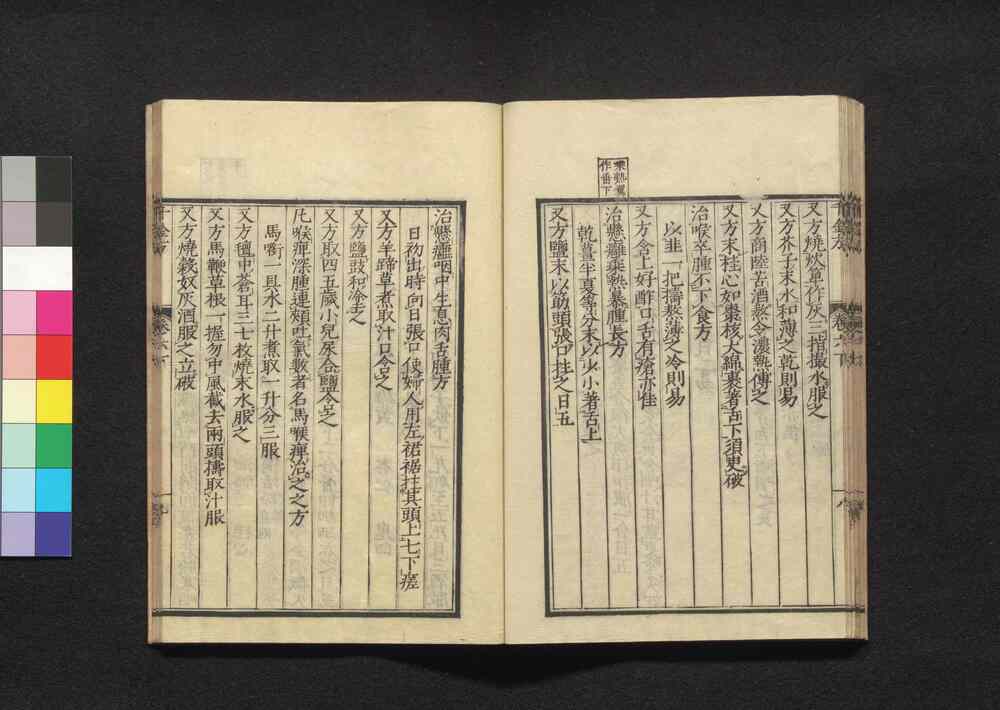 又方燒炊箄作灰三指撮水服之
又方芥子末水和薄之乾則易
又方商陸苦酒熬令濃熱傅之
又方末桂心如棗核大綿裹著舌下須臾破
治喉卒腫不下食方
以韭一把擣熬薄之冷則易
又方含上好酢口舌有瘡亦佳
治懸癰暴腫長方
乾薑半夏等分末以少少著舌上
又方鹽末以筯頭張口拄之日五
治懸癰咽中生息肉舌腫方
日初出時向日張口使婦人用左裙裾拄其頭上七下瘥
又方羊蹄草煮取汁口含之
又方鹽豉和塗之
又方取四五歲小兒尿合鹽含之
凡喉痺深腫連頰吐氣數者名馬喉痺治之之方
馬銜一具水二升煮取一升分三服
又方氊中蒼耳三七枚燒末水服之
又方馬鞭草根一握勿中風截去兩頭擣取汁服
又方燒穀奴灰酒服之立破
千金方
卷六下
九